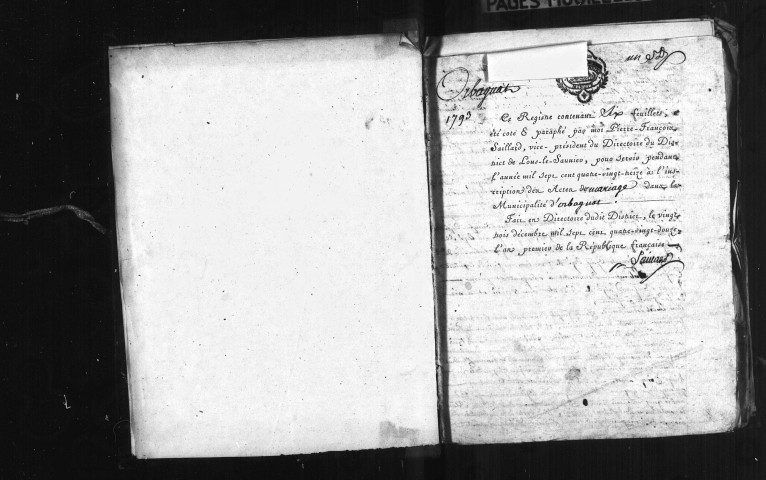 PAGES
un
Orbagnat
1793
Ce Registre contenant six feuillets, a
été coté & paraphé par moi Pierre-François
Saillard, vice-président du Directoire du Dis-
trict de Lons-le-Saunier, pour servir pendant
l'année mil sept cent quatre-vingt-treize à l'ins-
cription des Actes de mariage dans la
Municipalité d'orbagnat.
Fait en Directoire dudit District, le vingt
trois décembre mil sept cent quatre-vingt-douze
l'an premier de la République française